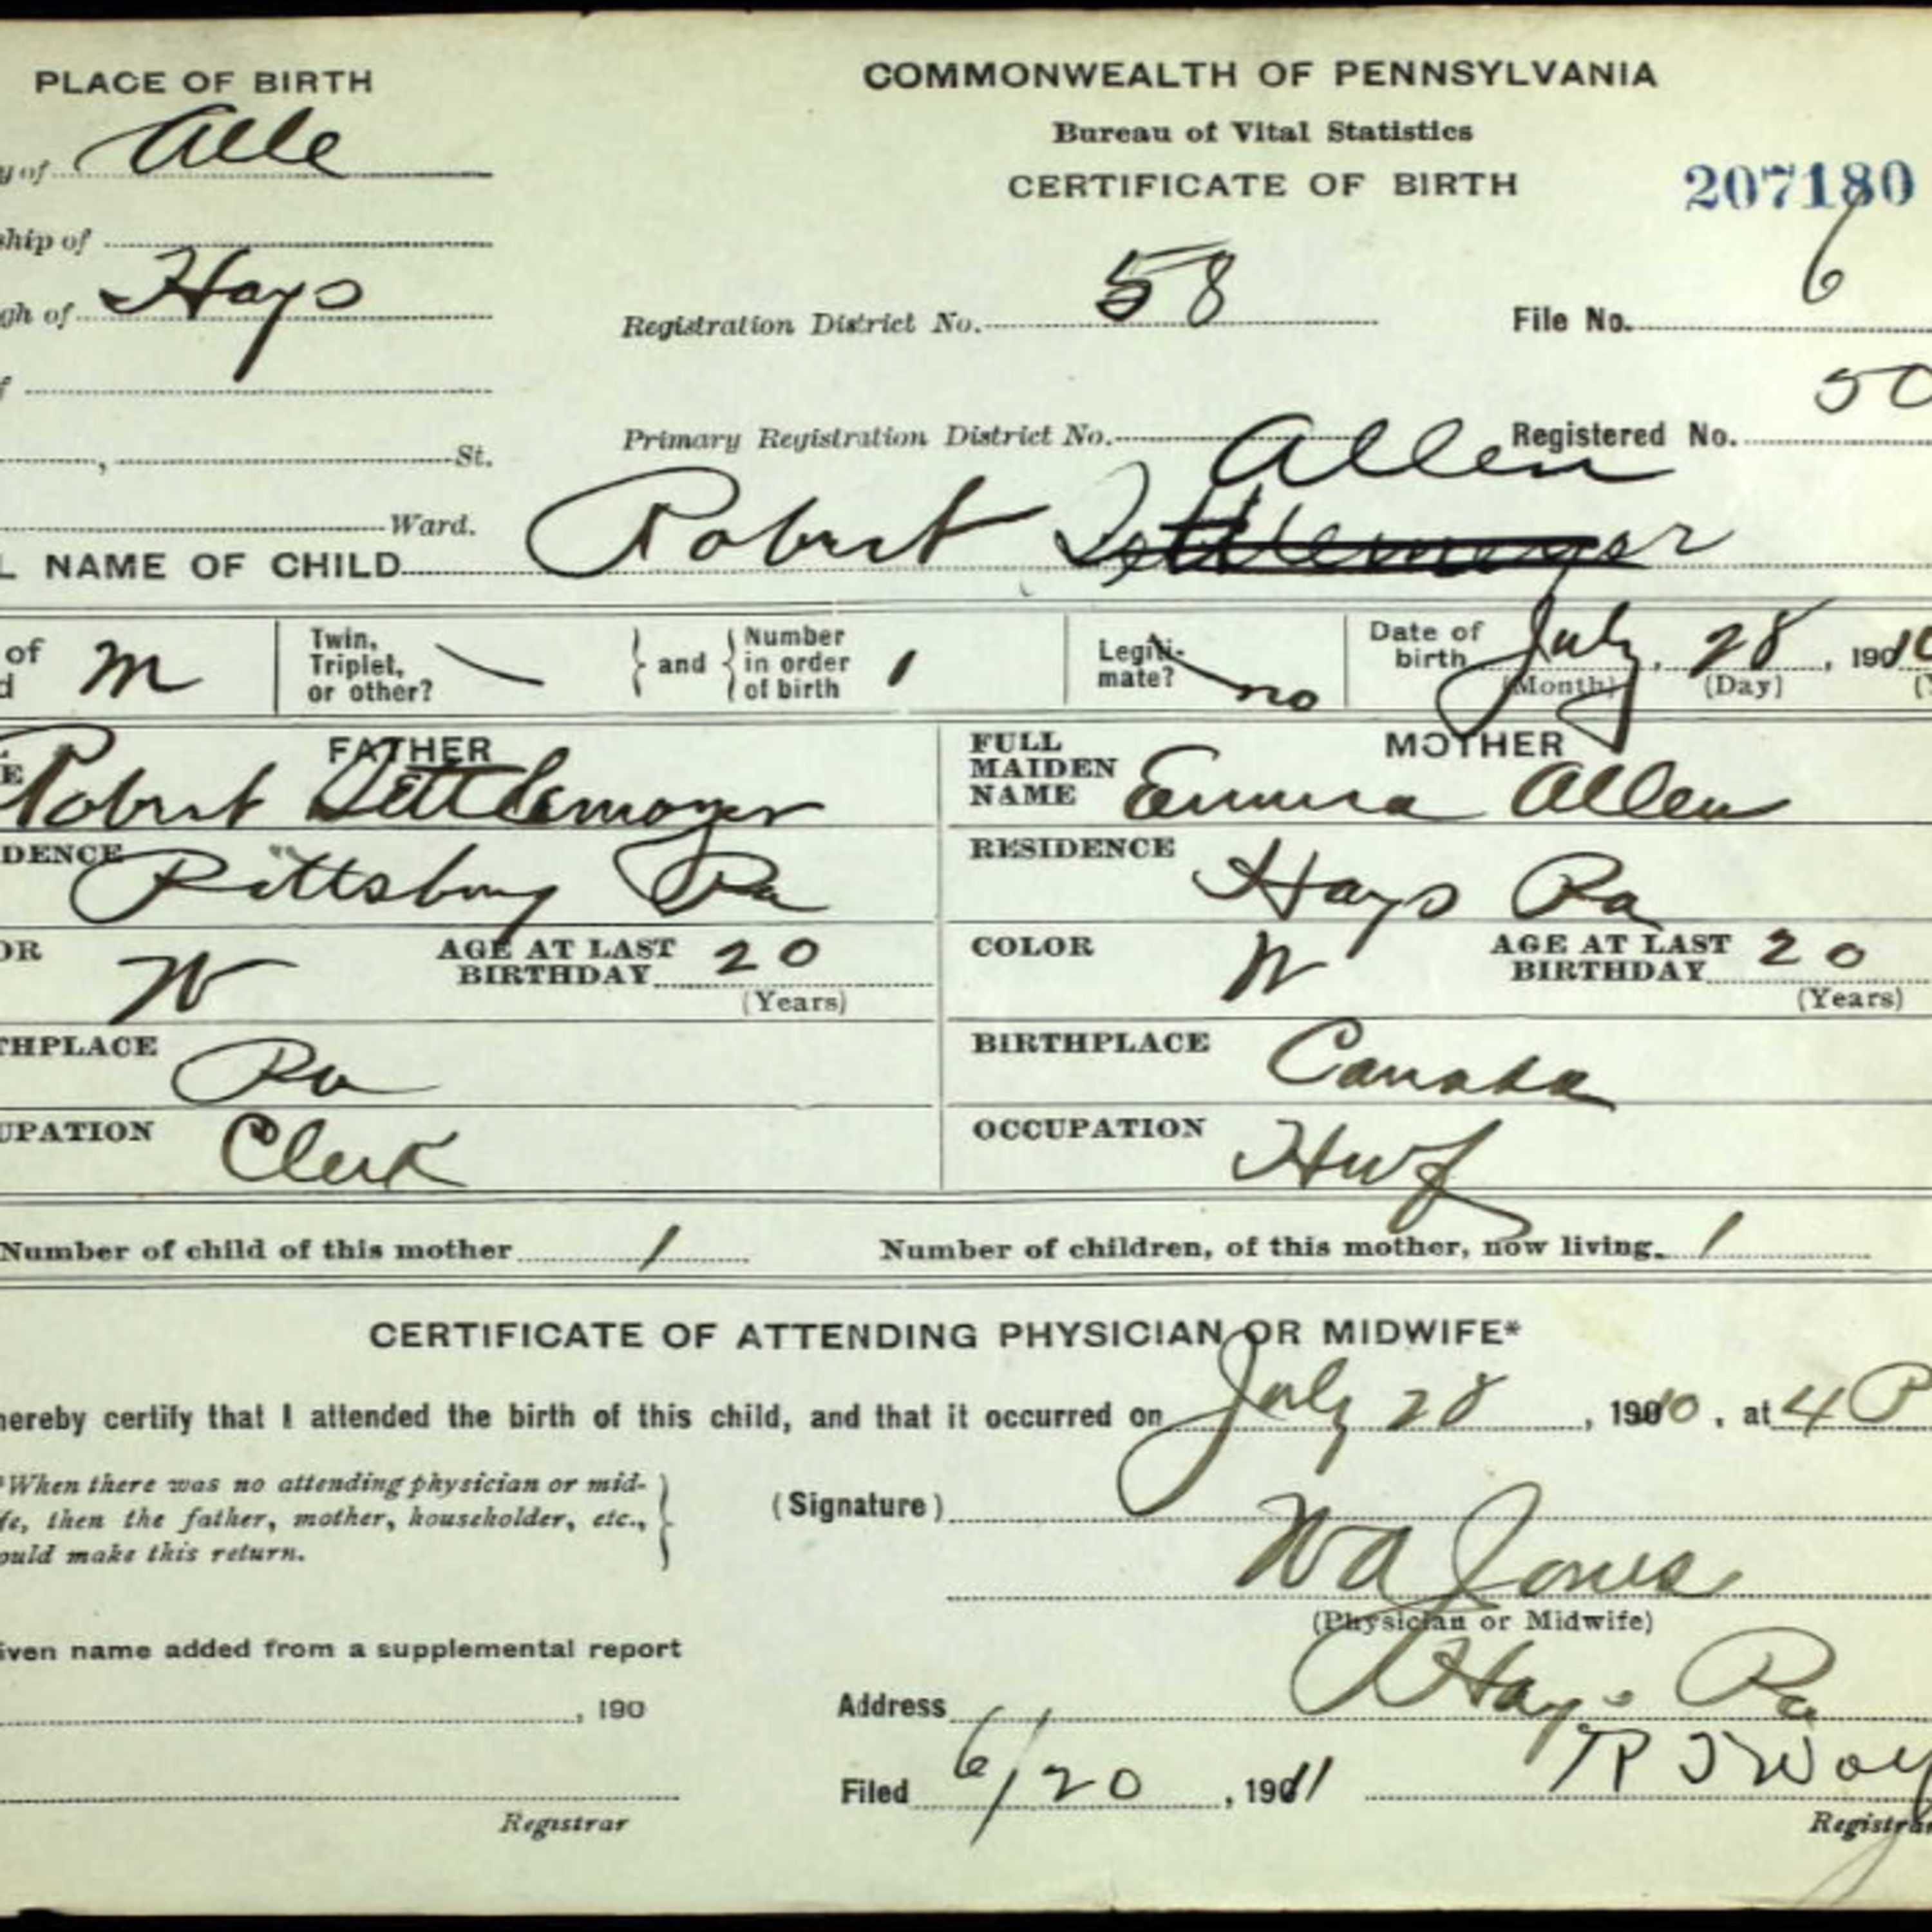 PLACE OF BIRTH
COMMONWEALTH OF PENNSYLVANIA
Bureau of Vital Statistics
CERTIFICATE OF BIRTH
207180
y of Alle
ship of
gh of Hays
f
, St.
Ward.
Registration District No. 58
File No. 6
Primary Registration District No.
Registered No. 50
Allen
L NAME OF CHILD Robert Settlemeyer
of
d
m
Twin,
Triplet,
or other?
and
Number
in order
of birth
1
Legiti-
mate?
no
Date of
birth July, 28, 1910
(Month) (Day)
FATHER
E Robert Settlemoyer
DENCE
Pittsburg Pa
OR W
AGE AT LAST
BIRTHDAY 20
(Years)
THPLACE Pa
UPATION Clerk
MOTHER
FULL
MAIDEN
NAME
Emma Allen
RESIDENCE
Hays Pa
COLOR W
AGE AT LAST
BIRTHDAY 20
(Years)
BIRTHPLACE Canada
OCCUPATION Hwf
Number of child of this mother 1
Number of children, of this mother, now living. 1
CERTIFICATE OF ATTENDING PHYSICIAN OR MIDWIFE*
hereby certify that I attended the birth of this child, and that it occurred on July 28, 1910, at 4 P
*When there was no attending physician or mid-
fe, then the father, mother, householder, etc.,
ould make this return.
(Signature)
W A Jones
(Physician or Midwife)
iven name added from a supplemental report
, 190
Registrar
Address Hays Pa
Filed 6/20, 1911
R J
Registrar